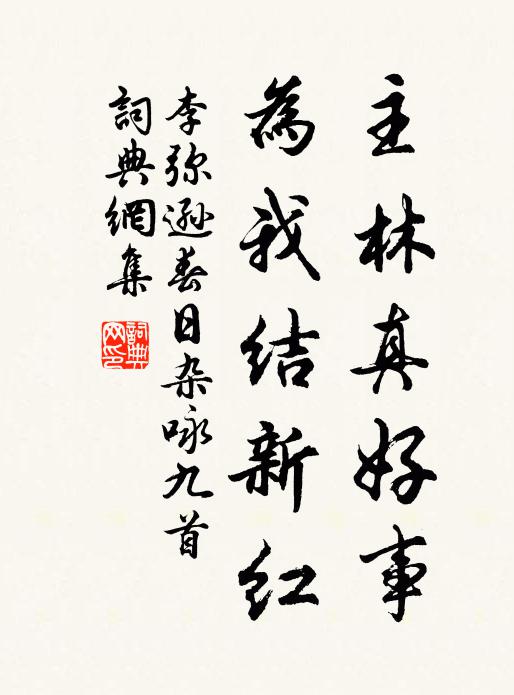 主林真好事
為我結新红
李弥遜春日杂咏九首
詞典網集
詞典網印